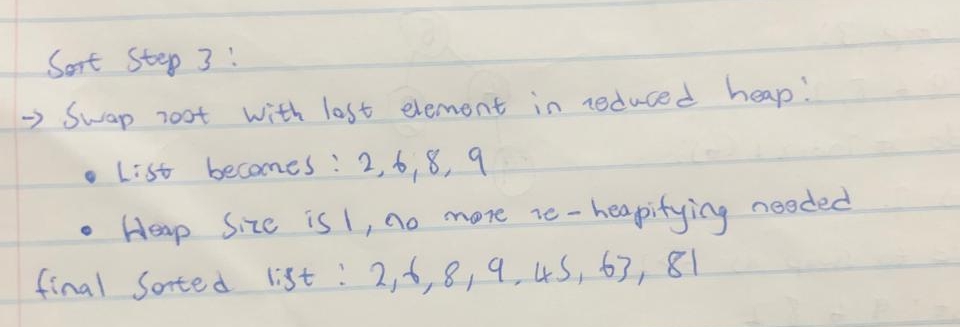 Sort Step 3 :
→ Swap root with last element in reduced heap :
• List becomes : 2, 6, 8, 9
• Heap Size is 1, no more re-heapifying needed
final Sorted list : 2, 6, 8, 9, 45, 63, 81